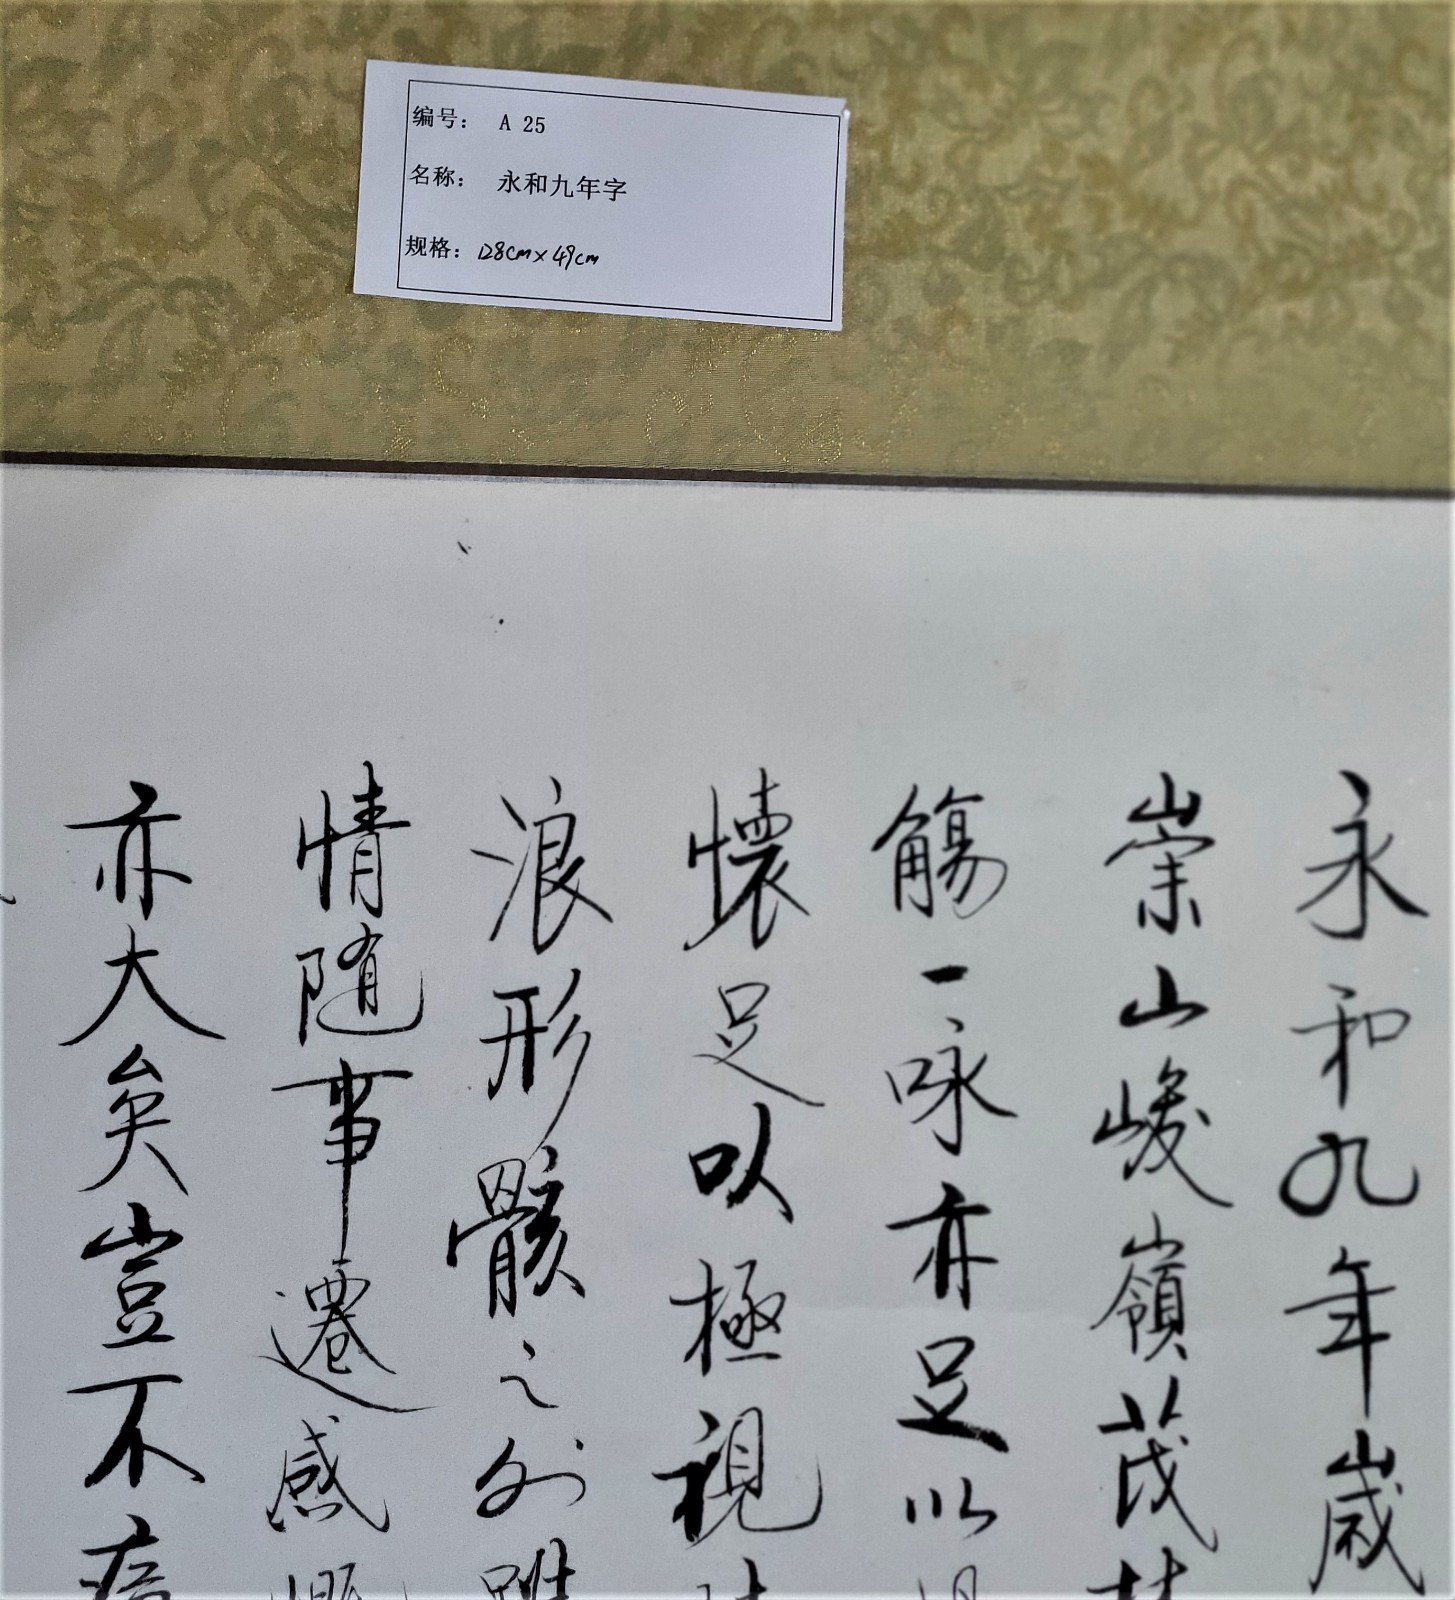 编号： A 25
名称： 永和九年字
规格：128cm×49cm
永和九年歲
崇山峻嶺茂林
觴一咏亦足以
懷足以極視
浪形骸之外
情随事遷感慨
亦大矣豈不痛